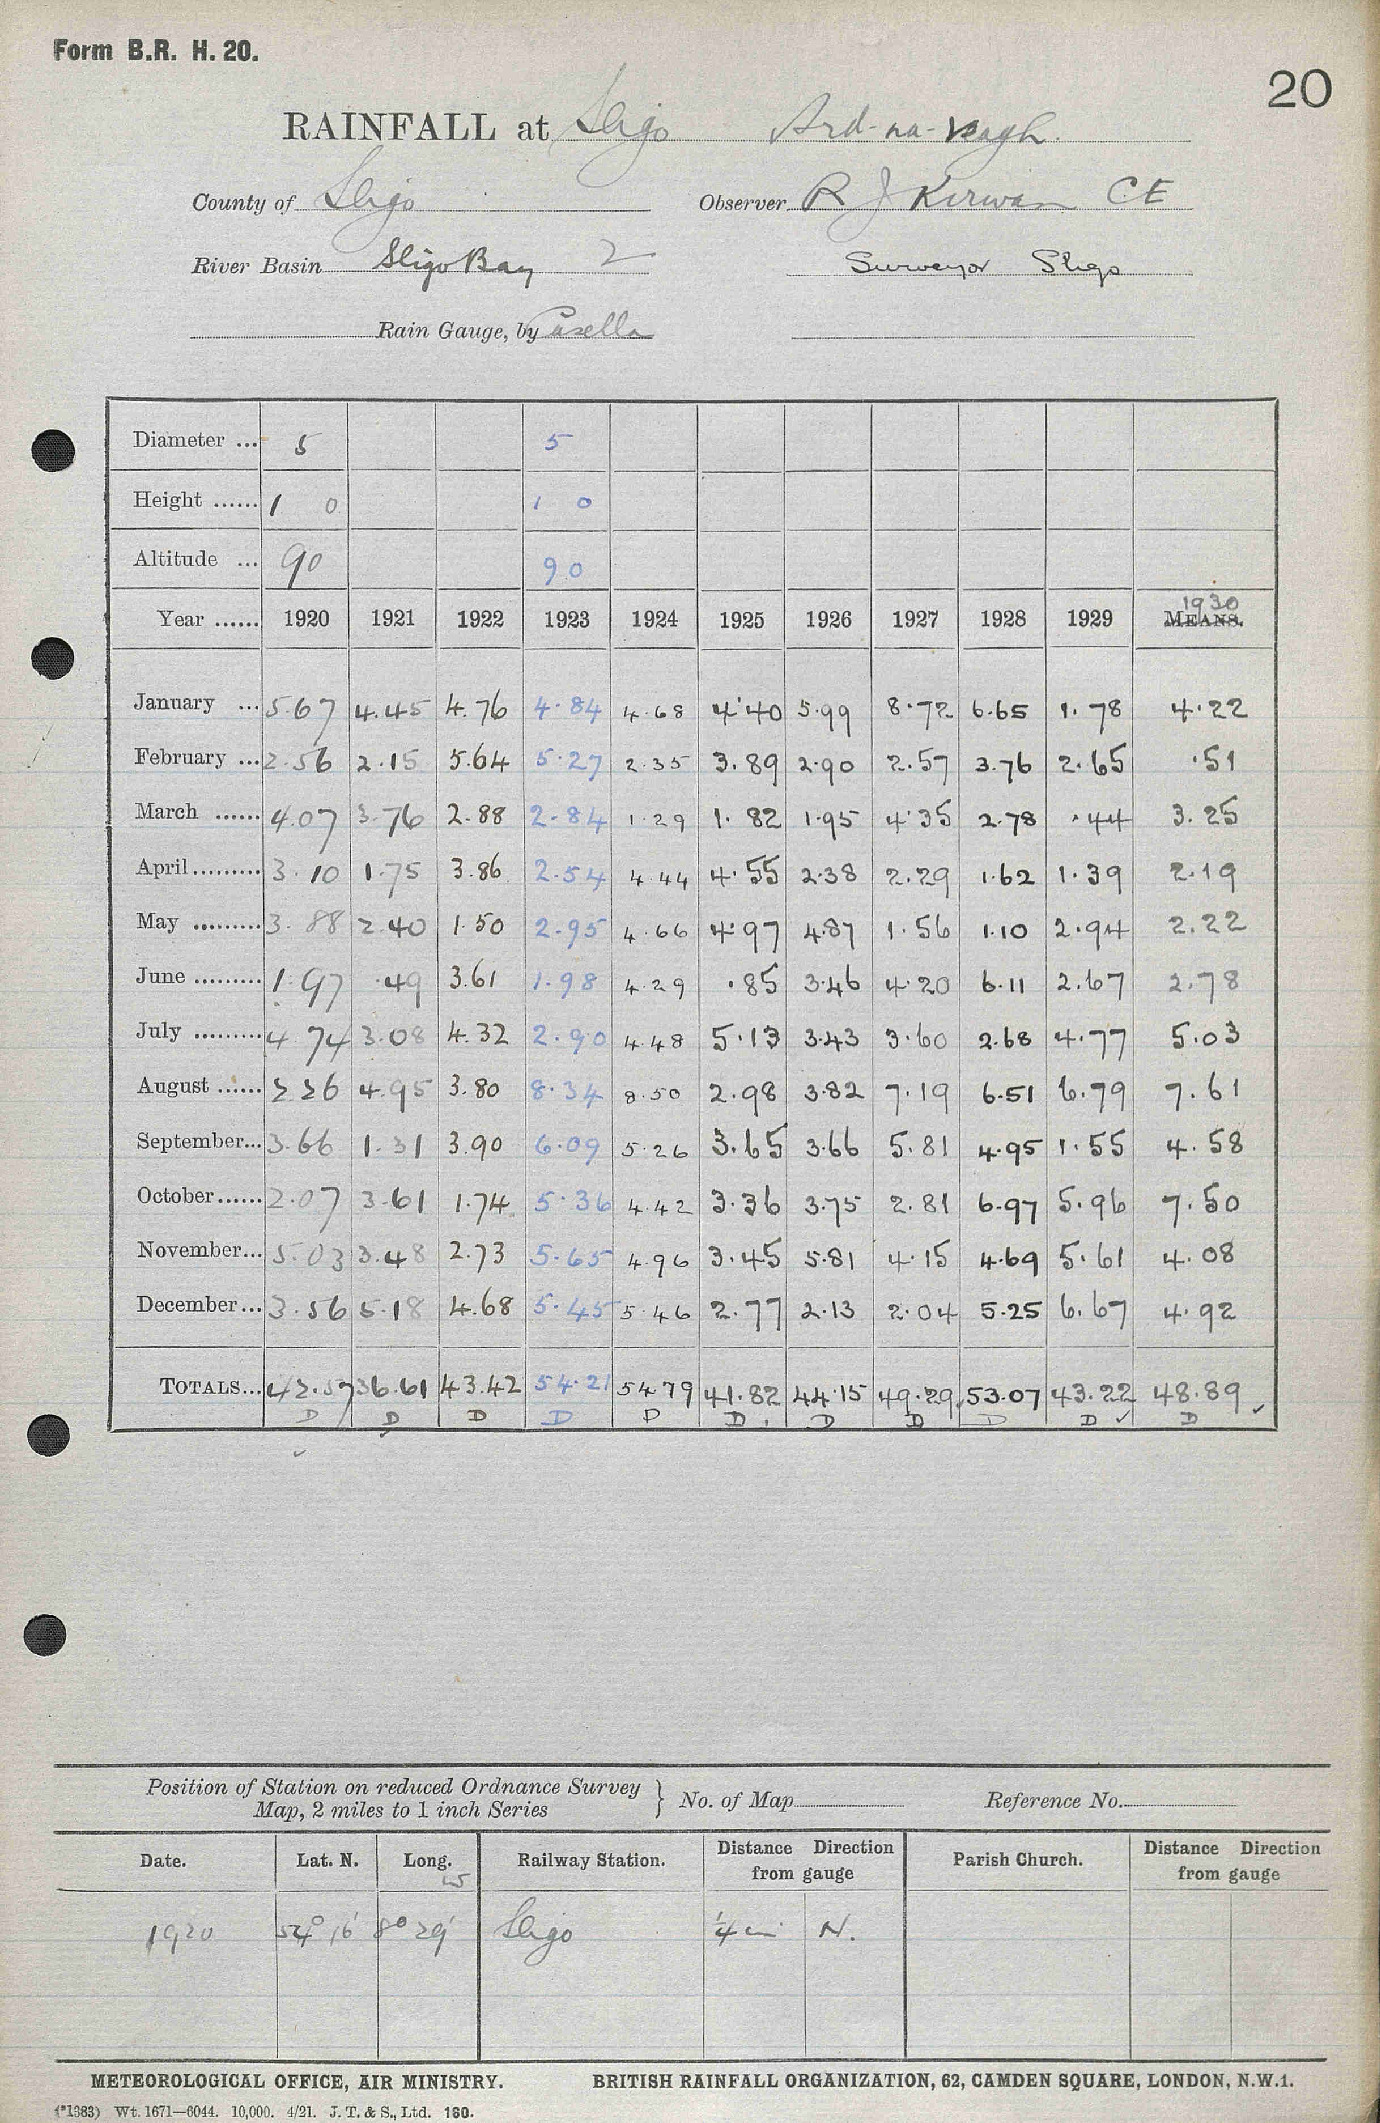 Form B.R. H. 20.
20
RAINFALL at Sligo Ard-na-veagh.
County of Sligo Observer R J Kirwan CE
River Basin Sligo Bay 2 Surveyor Sligo
Rain Gauge, by Casella
Diameter ... 5 5
Height ...... 1 0 1 0
Altitude ... 90 90
Year ...... 1920 1921 1922 1923 1924 1925 1926 1927 1928 1929 1930 MEANS.
January ... 5.67 4.45 4.76 4.84 4.68 4.40 5.99 8.72 6.65 1.78 4.22
February ... 2.56 2.15 5.64 5.27 2.35 3.89 2.90 2.57 3.76 2.65 .51
March ...... 4.07 3.76 2.88 2.84 1.29 1.82 1.95 4.35 2.78 .44 3.25
April......... 3.10 1.75 3.86 2.54 4.44 4.55 2.38 2.29 1.62 1.39 2.19
May ......... 3.88 2.40 1.50 2.95 4.66 4.97 4.87 1.56 1.10 2.94 2.22
June ......... 1.97 .49 3.61 1.98 4.29 .85 3.46 4.20 6.11 2.67 2.78
July ......... 4.74 3.08 4.32 2.90 4.48 5.13 3.43 3.60 2.68 4.77 5.03
August ...... 2.26 4.95 3.80 8.34 8.50 2.98 3.82 7.19 6.51 6.79 7.61
September... 3.66 1.31 3.90 6.09 5.26 3.65 3.66 5.81 4.95 1.55 4.58
October...... 2.07 3.61 1.74 5.36 4.42 3.36 3.75 2.81 6.97 5.96 7.50
November... 5.03 3.48 2.73 5.65 4.96 3.45 5.81 4.15 4.69 5.61 4.08
December... 3.56 5.18 4.68 5.45 5.46 2.77 2.13 2.04 5.25 6.67 4.92
TOTALS... 42.57 36.61 43.42 54.21 54.79 41.82 44.15 49.29 53.07 43.22 48.89
D D D D D D D D D D D
Position of Station on reduced Ordnance Survey
Map, 2 miles to 1 inch Series } No. of Map Reference No.
Date. Lat. N. Long. W Railway Station. Distance Direction from gauge Parish Church. Distance Direction from gauge
1920 54° 16' 8° 29' Sligo 1/4 m N.
METEOROLOGICAL OFFICE, AIR MINISTRY. BRITISH RAINFALL ORGANIZATION, 62, CAMDEN SQUARE, LONDON, N.W.1.
(*1383) Wt. 1671—6044. 10,000. 4/21. J. T. & S., Ltd. 160.